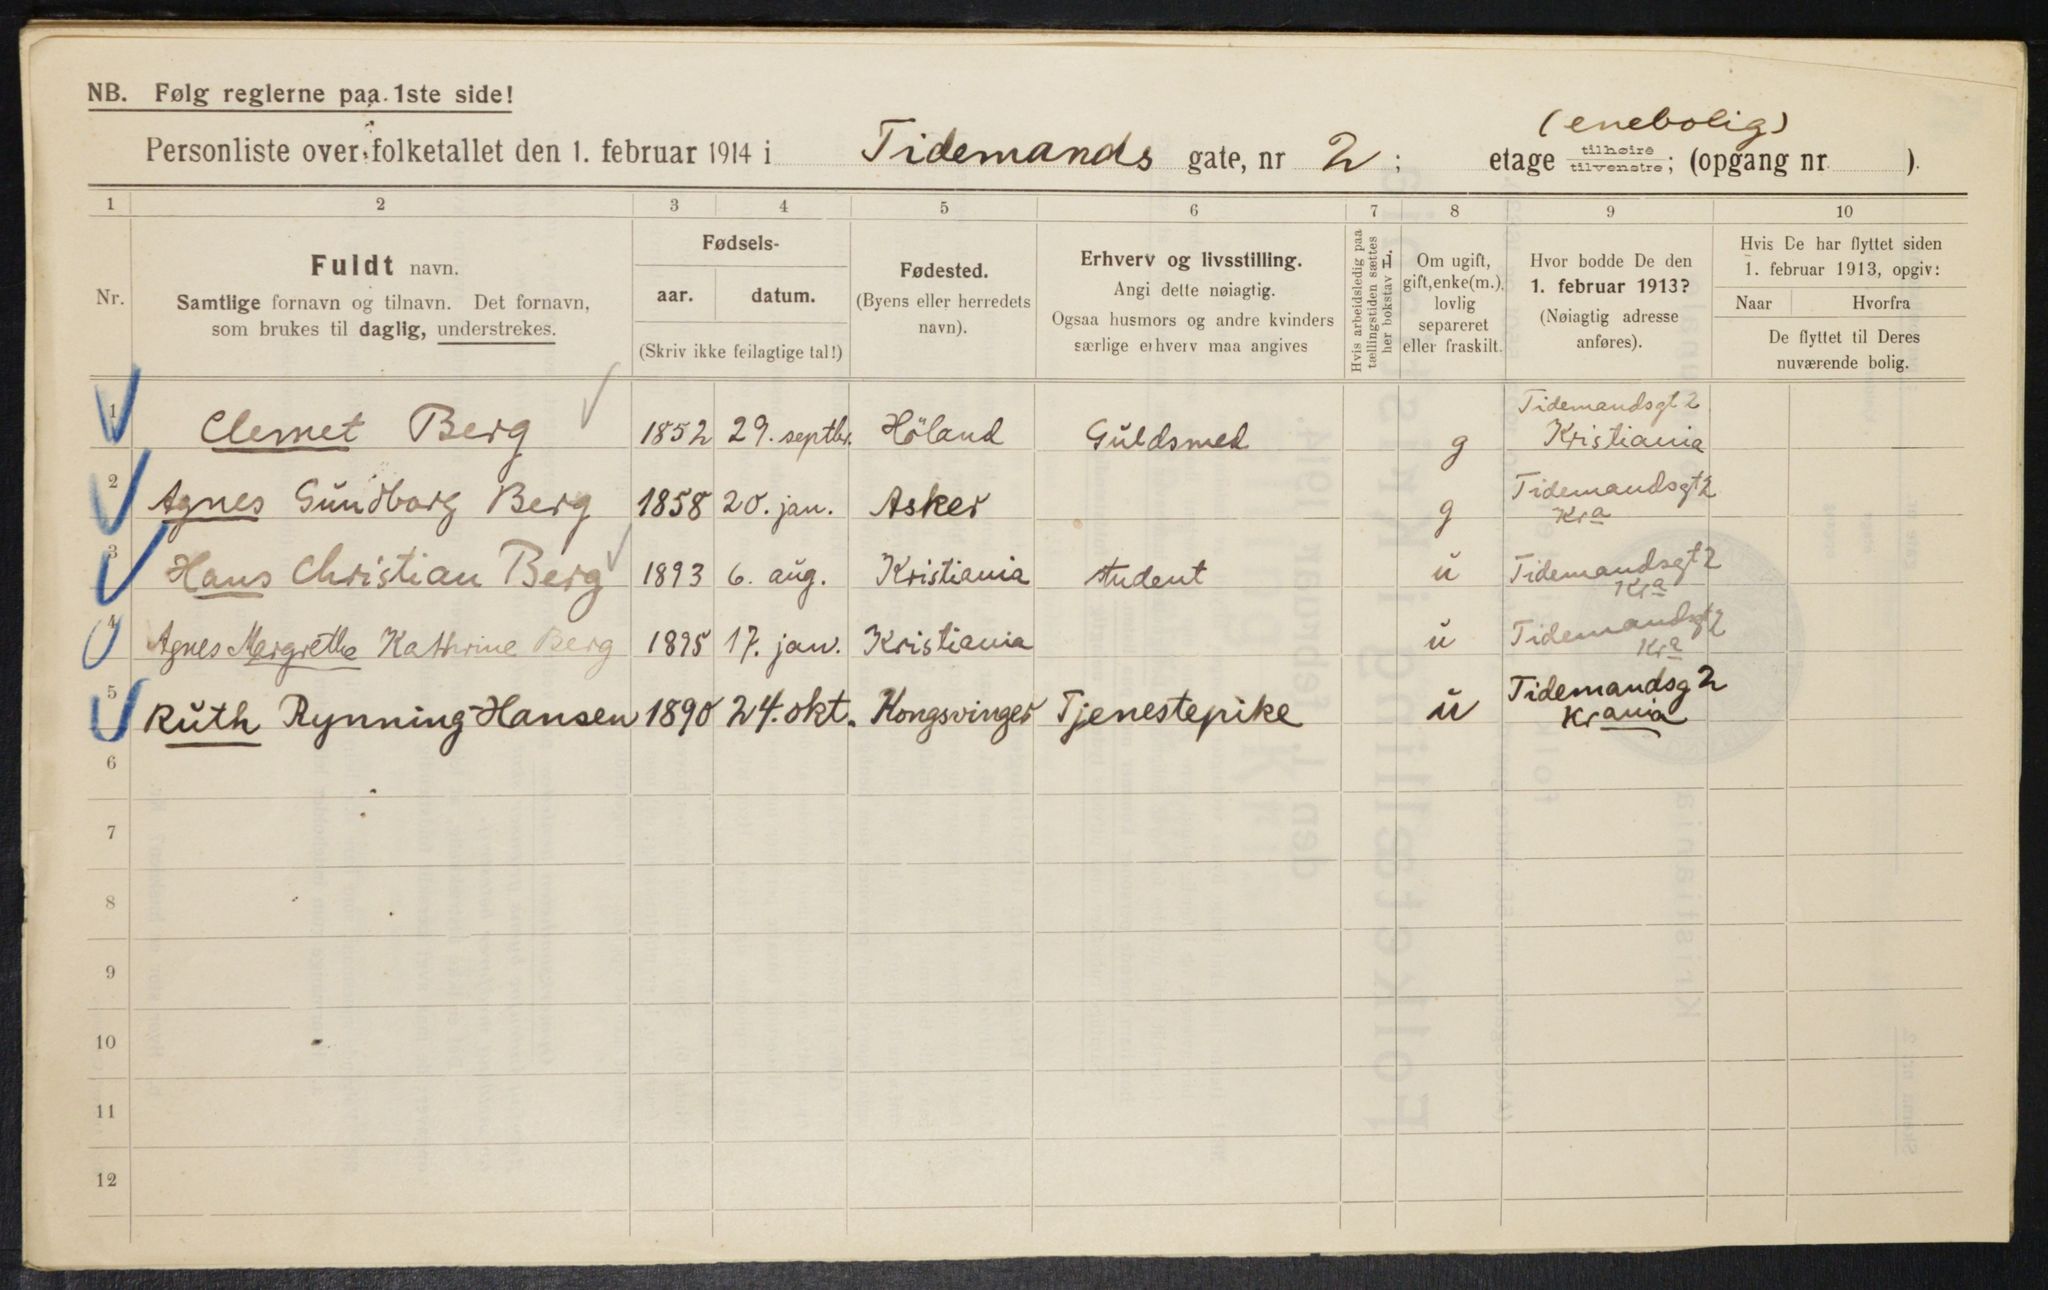 NB. Følg reglerne paa 1ste side!
(enebolig)
Personliste over folketallet den 1. februar 1914 i Tidemands gate, nr 2; etage tilhøire tilvenstre; (opgang nr ).
1 2 3 4 5 6 7 8 9 10
Nr.
Fuldt navn.
Samtlige fornavn og tilnavn. Det fornavn,
som brukes til daglig, understrekes.
Fødsels-
aar. datum.
(Skriv ikke feilagtige tal!)
Fødested.
(Byens eller herredets
navn).
Erhverv og livsstilling.
Angi dette nøiagtig.
Ogsaa husmors og andre kvinders
særlige erhverv maa angives
Hvis arbeidsledig paa
tællingstiden sættes
her bokstav
Om ugift,
gift, enke(m.),
lovlig
separeret
eller fraskilt.
Hvor bodde De den
1. februar 1913?
(Nøiagtig adresse
anføres).
Hvis De har flyttet siden
1. februar 1913, opgiv:
Naar Hvorfra
De flyttet til Deres
nuværende bolig.
1 Clemet Berg 1852 29. septbr. Höland Guldsmed g Tidemandsgt 2
Kristiania
2 Agnes Gundborg Berg 1858 20. jan. Asker g Tidemandsgt 2
Kra
3 Hans Christian Berg 1893 6. aug. Kristiania student u Tidemandsgt 2
Kra
4 Agnes Margrethe Kathrine Berg 1895 17. jan. Kristiania u Tidemandsgt 2
Kra
5 Ruth Rynning-Hansen 1890 24. okt. Kongsvinger Tjenestepike u Tidemandsg 2
Krania
6
7
8
9
10
11
12